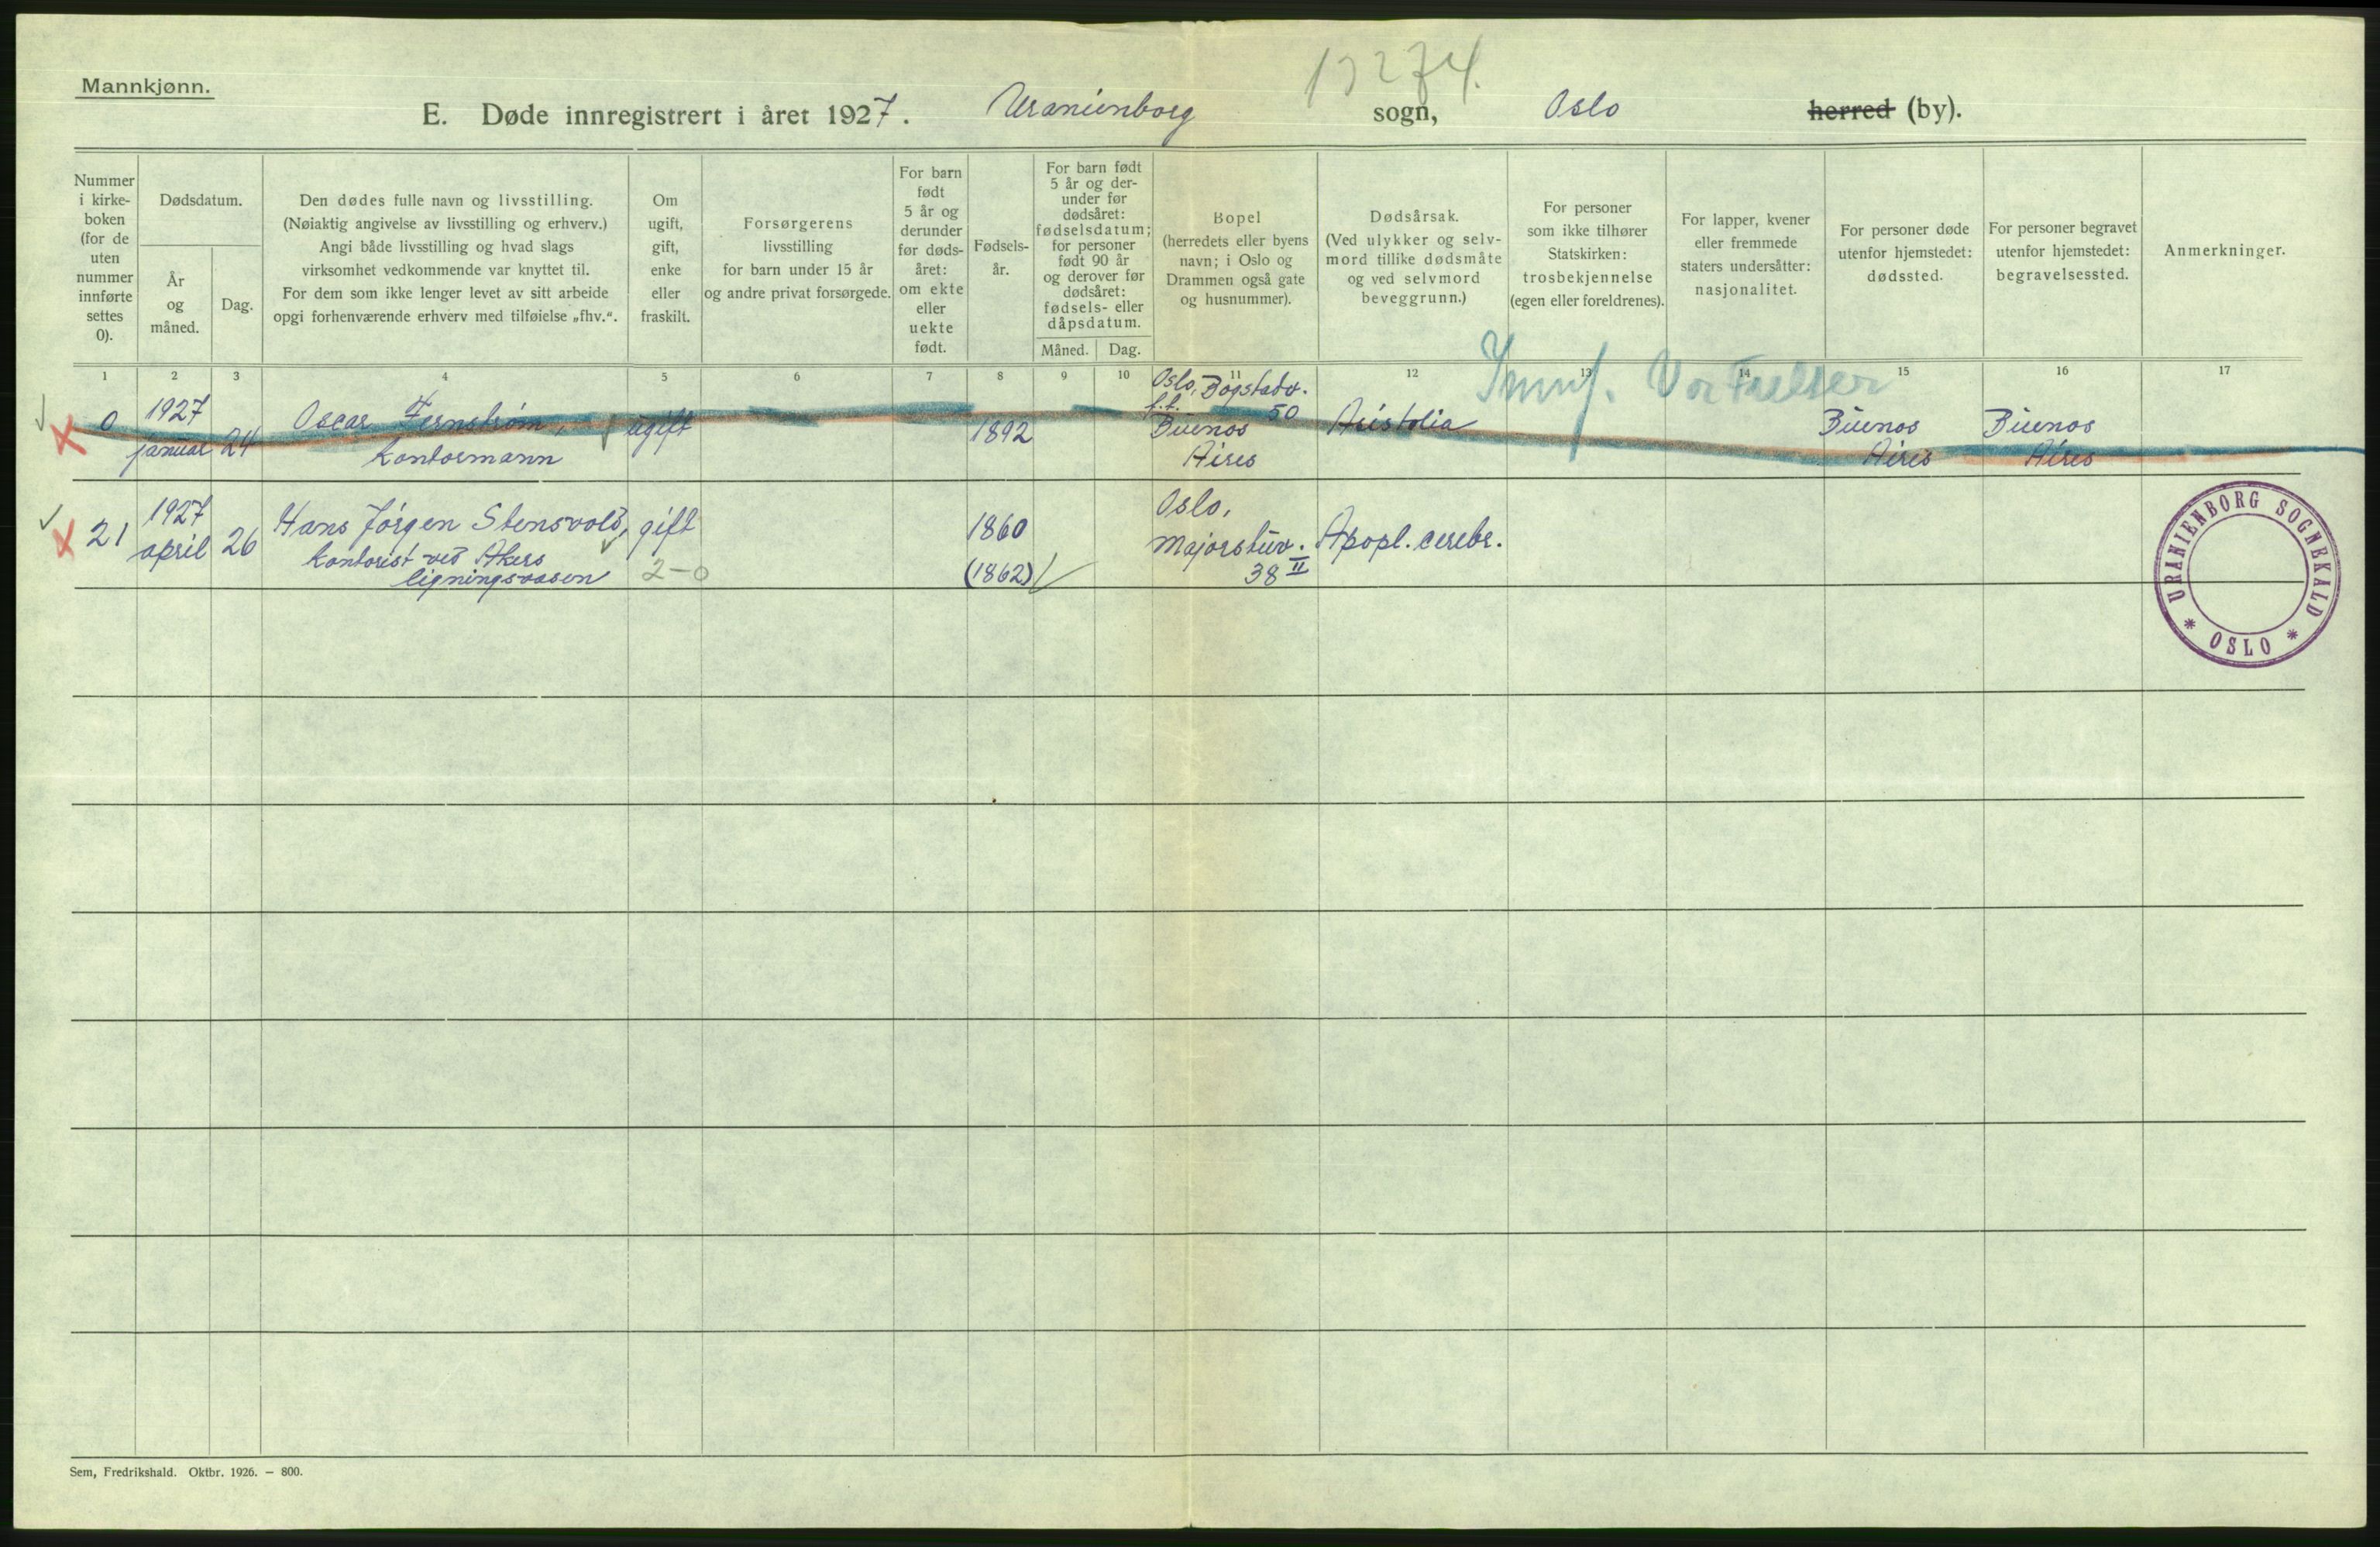 Mannkjønn.
13274.
E. Døde innregistrert i året 1927. Uranienborg sogn, Oslo herred (by).
Nummer i kirke- boken (for de uten nummer innførte settes 0).
Dødsdatum.
År og måned.
Dag.
Den dødes fulle navn og livsstilling.
(Nøiaktig angivelse av livsstilling og erhverv.)
Angi både livsstilling og hvad slags
virksomhet vedkommende var knyttet til.
For dem som ikke lenger levet av sitt arbeide
opgi forhenværende erhverv med tilføielse „fhv.“.
Om ugift, gift, enke eller fraskilt.
Forsørgerens
livsstilling
for barn under 15 år
og andre privat forsørgede.
For barn født 5 år og derunder før døds- året: om ekte eller uekte født.
Fødsels- år.
For barn født 5 år og der- under før dødsåret: fødselsdatum; for personer født 90 år og derover før dødsåret: fødsels- eller dåpsdatum.
Måned. Dag.
Bopel
(herredets eller byens
navn; i Oslo og
Drammen også gate
og husnummer).
Dødsårsak.
(Ved ulykker og selv-
mord tillike dødsmåte
og ved selvmord
beveggrunn.)
For personer
som ikke tilhører
Statskirken:
trosbekjennelse
(egen eller foreldrenes).
For lapper, kvener
eller fremmede
staters undersåtter:
nasjonalitet.
For personer døde
utenfor hjemstedet:
dødssted.
For personer begravet
utenfor hjemstedet:
begravelsessted.
Anmerkninger.
1 2 3 4 5 6 7 8 9 10 11 12 13 14 15 16 17
0 1927 januar 24
Oscar Fernstrøm,
kontormann
ugift
1892
Oslo, Bogstadv. 50
f.t.
Buenos
Aires
Vor Frelser
Buenos
Aires
Buenos
Aires
21 1927 april 26
Hans Jörgen Stensvold,
kontorist ved Akers
ligningsvesen
gift
2-0
1860
(1862)
Oslo,
Majorstuv.
38 II
Apopl. cerebr.
URANIENBORG SOGNEKALD * OSLO *
Sem, Fredrikshald. Oktbr. 1926. — 800.